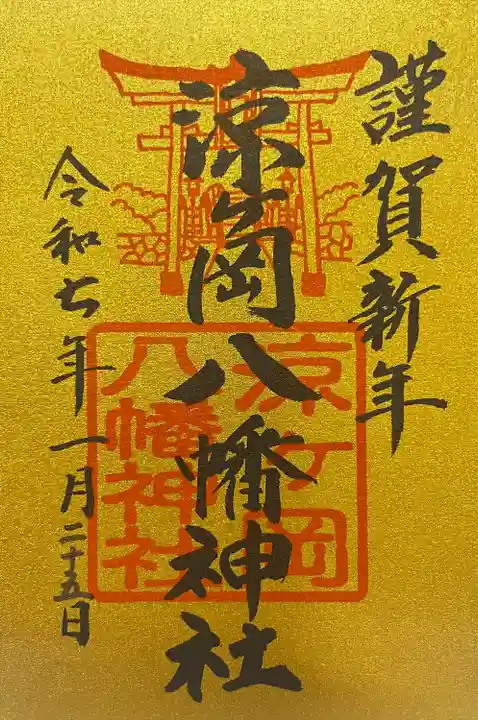 謹賀新年
涼ケ岡八幡神社
涼ヶ岡
八幡神社
令和七年一月二十五日